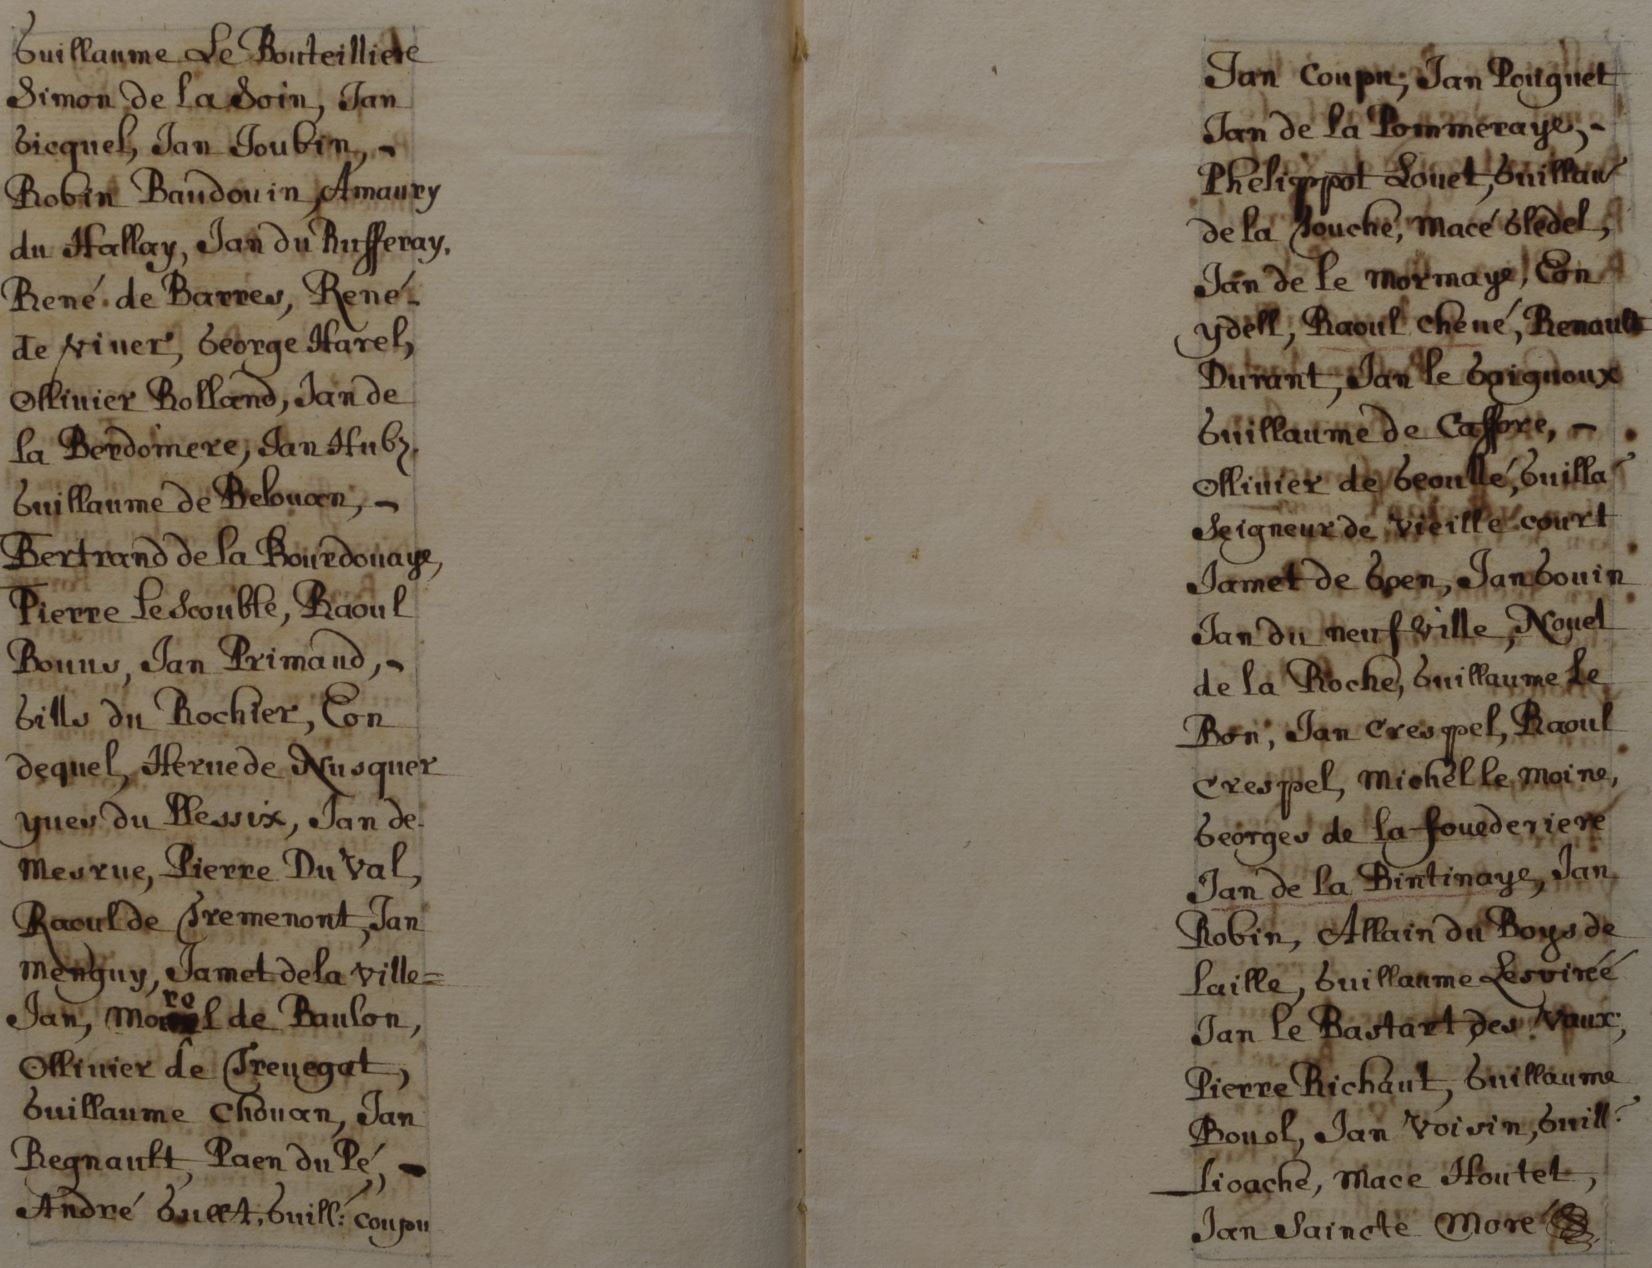 Guillaume Le Bouteilliere
Simon de la Soin, Jan
Gicquel, Jan Joubin,-
Robin Baudouin, Amaury
du Hallay, Jan du Rufferay.
René de Barres, René-
de viuer, George Harel,
Ollivier Rolland, Jan de
la Berdoinere, Jan Huby.
Guillaume de Belouan,-
Bertrand de la Bourdouaye,
Pierre LeScouble, Raoul
Bouus, Jan Primaud,-
Gills du Rochier, Eon
dequel, Herue de Nusquer
yues du Plessix, Jan de
Mesrue, Pierre Du Val,
Raoul de Tremenont, Jan
Menguy, Jamet de la ville=
Jan, Morel de Baulon,
Ollivier de Treuegat,
Guillaume Chouan, Jan
Regnault, Paen du Pé,-
André Guill: coupu
Jan Coupu, Jan Pouguet
Jan de la Pommeraye,-
Phelippot Louet, Guillau
de la Touche, Macé Gledel,
Jan de le Mormaye, Eon
ydell, Raoul chené, Renault
Durant, Jan le Goignoux
Guillaume de Caffore,-
Ollivier de Geoullé, Guilla
Seigneur de Vieille court
Jamet de Goen, Jan Gouin
Jan du neufville, Nouel
de la Roche, Guillaume Le
Bon, Jan Crespel, Raoul
Crespel, Michel le moine,
Georges de la fouederiere
Jan de la Bintinaye, Jan
Robin, Allain du Boys de
Laille, Guillaume Lesvireé
Jan le Bastart des Vaux,
Pierre Richaut, Guillaume
Bouol, Jan Voisin, Guill:
Lioache, Mace Houtet,
Jan Saincte Moré